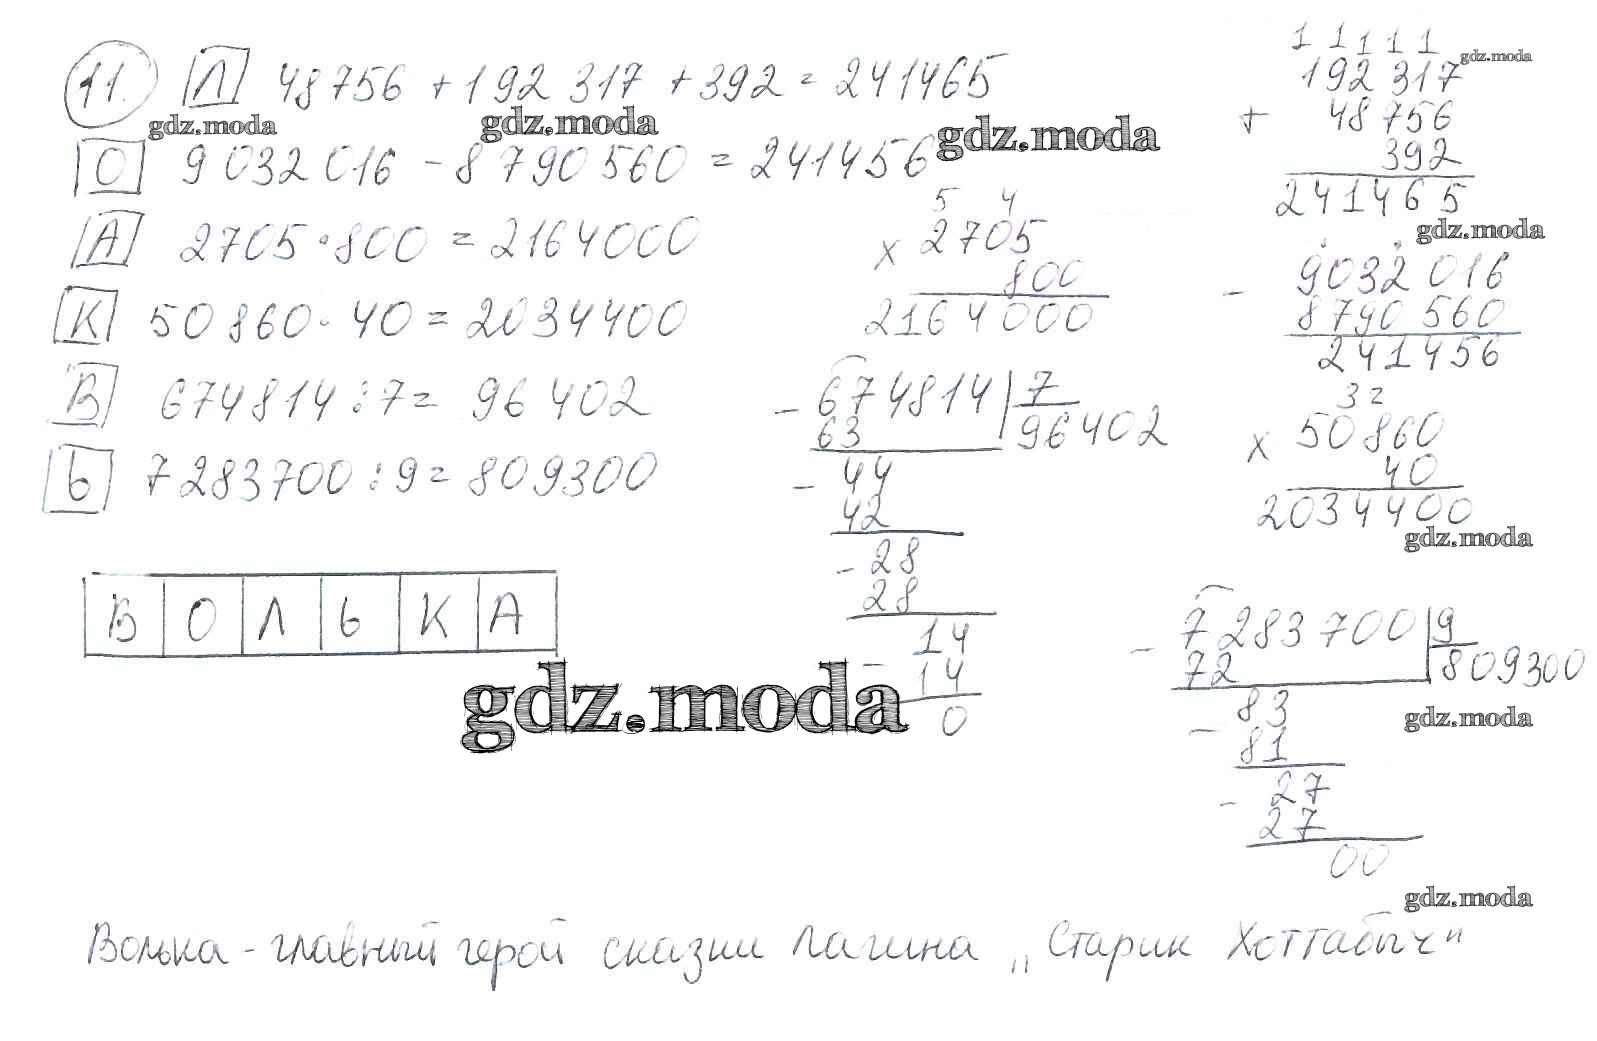 11. Л 48756 + 192 317 + 392 = 241465
gdz.moda gdz.moda gdz.moda
О 9 032 016 - 8 790 560 = 241456
А 2705 · 800 = 2164000
К 50 860 · 40 = 2034400
В 674814 : 7 = 96 402
Ь 7 283700 : 9 = 809300
В О Л Ь К А
5 4
× 2705
800
2164000
- 674814 7
63 96402
- 44
42
- 28
28
- 14
14
0
gdz.moda
1 1 1 1 1
gdz.moda
192 317
+ 48 756
392
241465
gdz.moda
- 9032 016
8 790 560
241456
3 2
× 50860
40
2034400
gdz.moda
- 7 283 700 9
72 809300
gdz.moda
- 83
81
- 27
27
00
gdz.moda
Волька - главный герой сказки Лагина „Старик Хоттабыч"